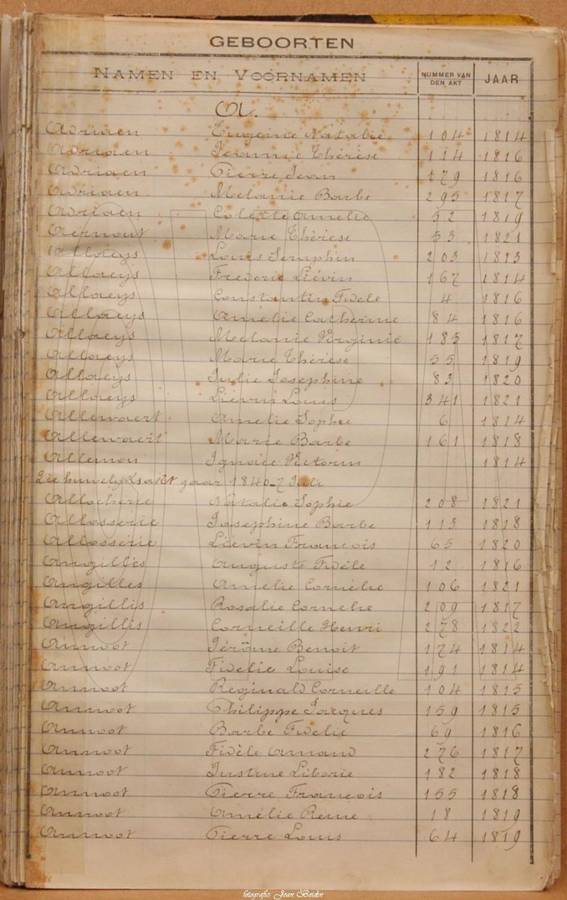 GEBOORTEN
NAMEN EN VOORNAMEN NUMMER VAN DEN AKT JAAR
A.
Adriaen Eugenie Natalie 104 1814
Adriaen Jeannie Thérèse 114 1816
Adriaen Pierre Jean 179 1816
Adriaen Melanie Barbe 295 1817
Adriaen Colette Amelie 52 1819
Aernout Marie Thérèse 53 1821
Allaeys Louis Seraphin 203 1813
Allaeys Frederic Liévin 167 1814
Allaeys Constantin Fidele 4 1816
Allaeys Amelie Catherine 84 1816
Allaeys Melanie Virginie 185 1817
Allaeys Marie Thérèse 55 1819
Allaeys Julie Josephine 83 1820
Allaeys Liévin Louis 341 1821
Allewaert Amelie Sophie 6 1814
Allewaert Marie Barbe 161 1818
Allemon Ignace Victorin 1814
Zie huwelijksakt jaar 1840 - 7 Juli
Allocherie Natalie Sophie 208 1821
Allosserie Josephine Barbe 113 1818
Allosserie Liévin François 65 1820
Angillis Auguste Fidèle 12 1816
Angilles Amelie Cornélie 106 1821
Angillis Rosalie Cornelie 209 1817
Angillis Corneille Henri 278 1822
Annoot Jérôme Benoit 174 1814
Annoot Fidelie Louise 191 1814
Annoot Reginald Corneille 104 1815
Annoot Philippe Jacques 159 1815
Annoot Barbe Fidelie 69 1816
Annoot Fidèle Amand 276 1817
Annoot Justine Liborie 182 1818
Annoot Pierre François 155 1818
Annoot Amélie Reine 18 1819
Annoot Pierre Louis 64 1819
fotografie: Jean